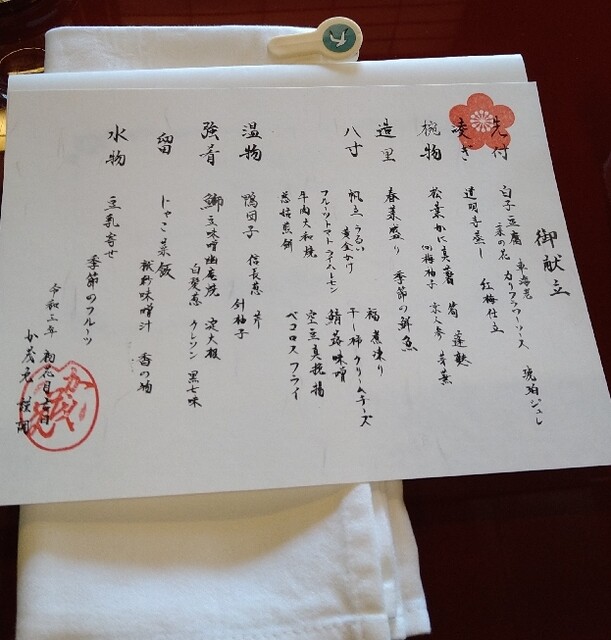 御献立
先付
白子豆腐 車海老
菜の花 カリフラワーソース 琥珀ジュレ
凌ぎ
道明寺蒸し 紅梅仕立
椀物
松葉かに真薯 筍 蓬麩
梅柚子 京人参 芽蕪
造里
春菜盛り 季節の鮮魚
八寸
帆立 うるい 黄金かけ 福 煮凍り
フルーツトマト ライスーモン 干し柿クリームチーズ
牛肉大和焼 鯖蕗味噌
慈姑煎餅 空豆真挽揚
ペコロスフライ
温物
鴨団子 信長葱 芹
針柚子
強肴
鰤 立味噌幽庵焼 淀大根
白髪葱 クレソン 黒七味
留
じゃこ菜飯
粉味噌汁 香の物
水物
豆乳寄せ
季節のフルーツ
令和三年 初花月